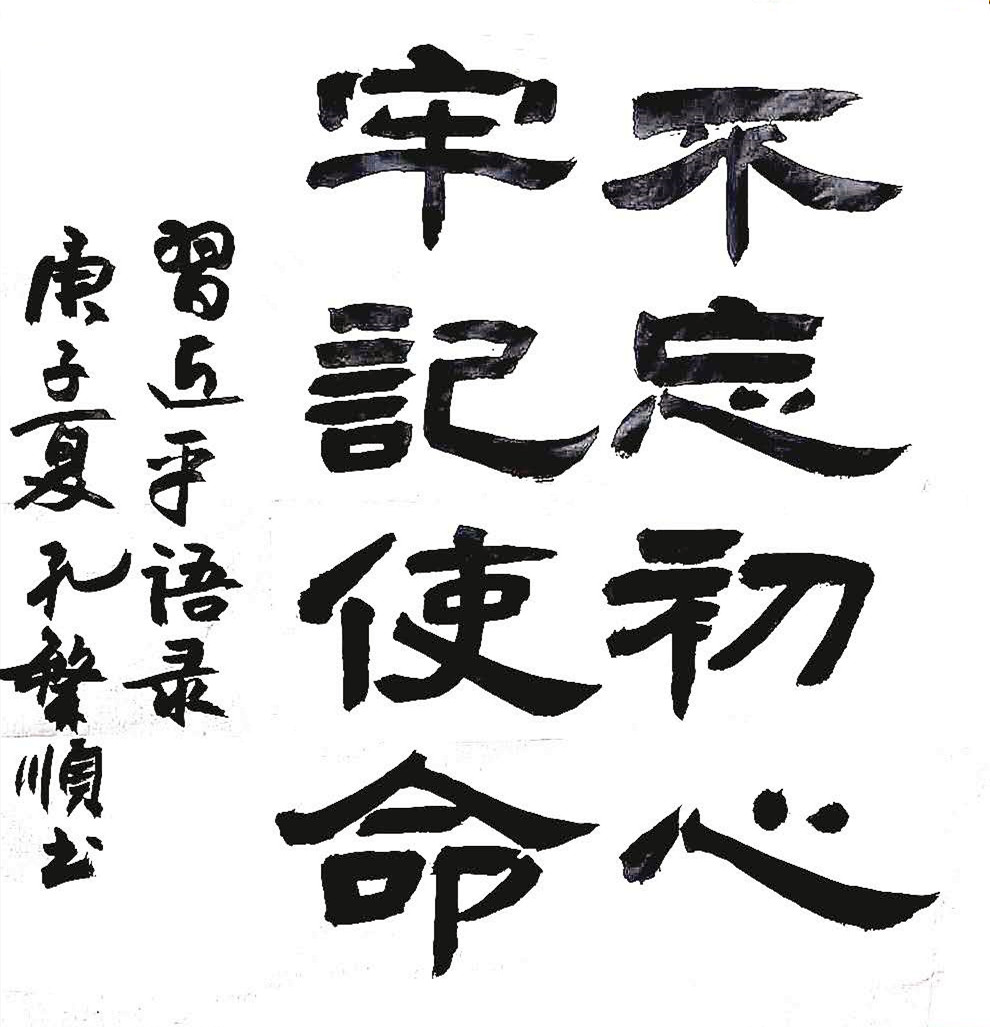 不忘初心
牢記使命
習近平语录
庚子夏孔繁順书